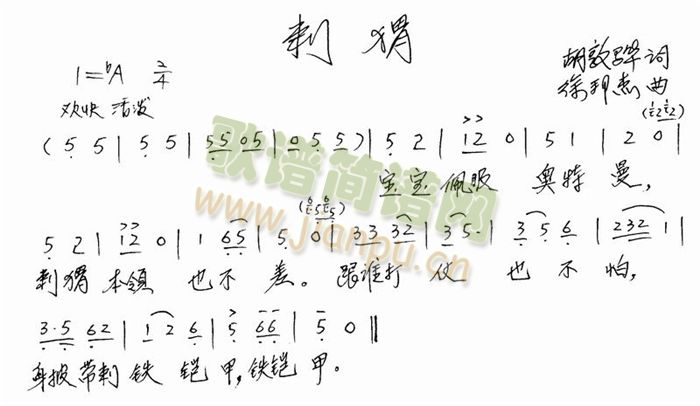 刺猬
1=♭A 2/4
胡敦骅 词
徐邦杰 曲
欢快 活泼
( 5 5 | 5 5 | 55 05 | 0 5 5 ) | 5 2 | 12 0 | 5 1 | 2 0 |
宝宝佩服 奥特曼,
5 2 | 12 0 | 1 65 | 5 0 | 33 32 | 35· | 3 5 6 | 232 1 |
刺猬本领 也不差。跟谁打仗 也不怕,
3·5 62 | 1 2 6 | 5 66 | 5 0 ‖
身披带刺铁铠甲,铁铠甲。
歌谱简谱网
www.jianpu.cn